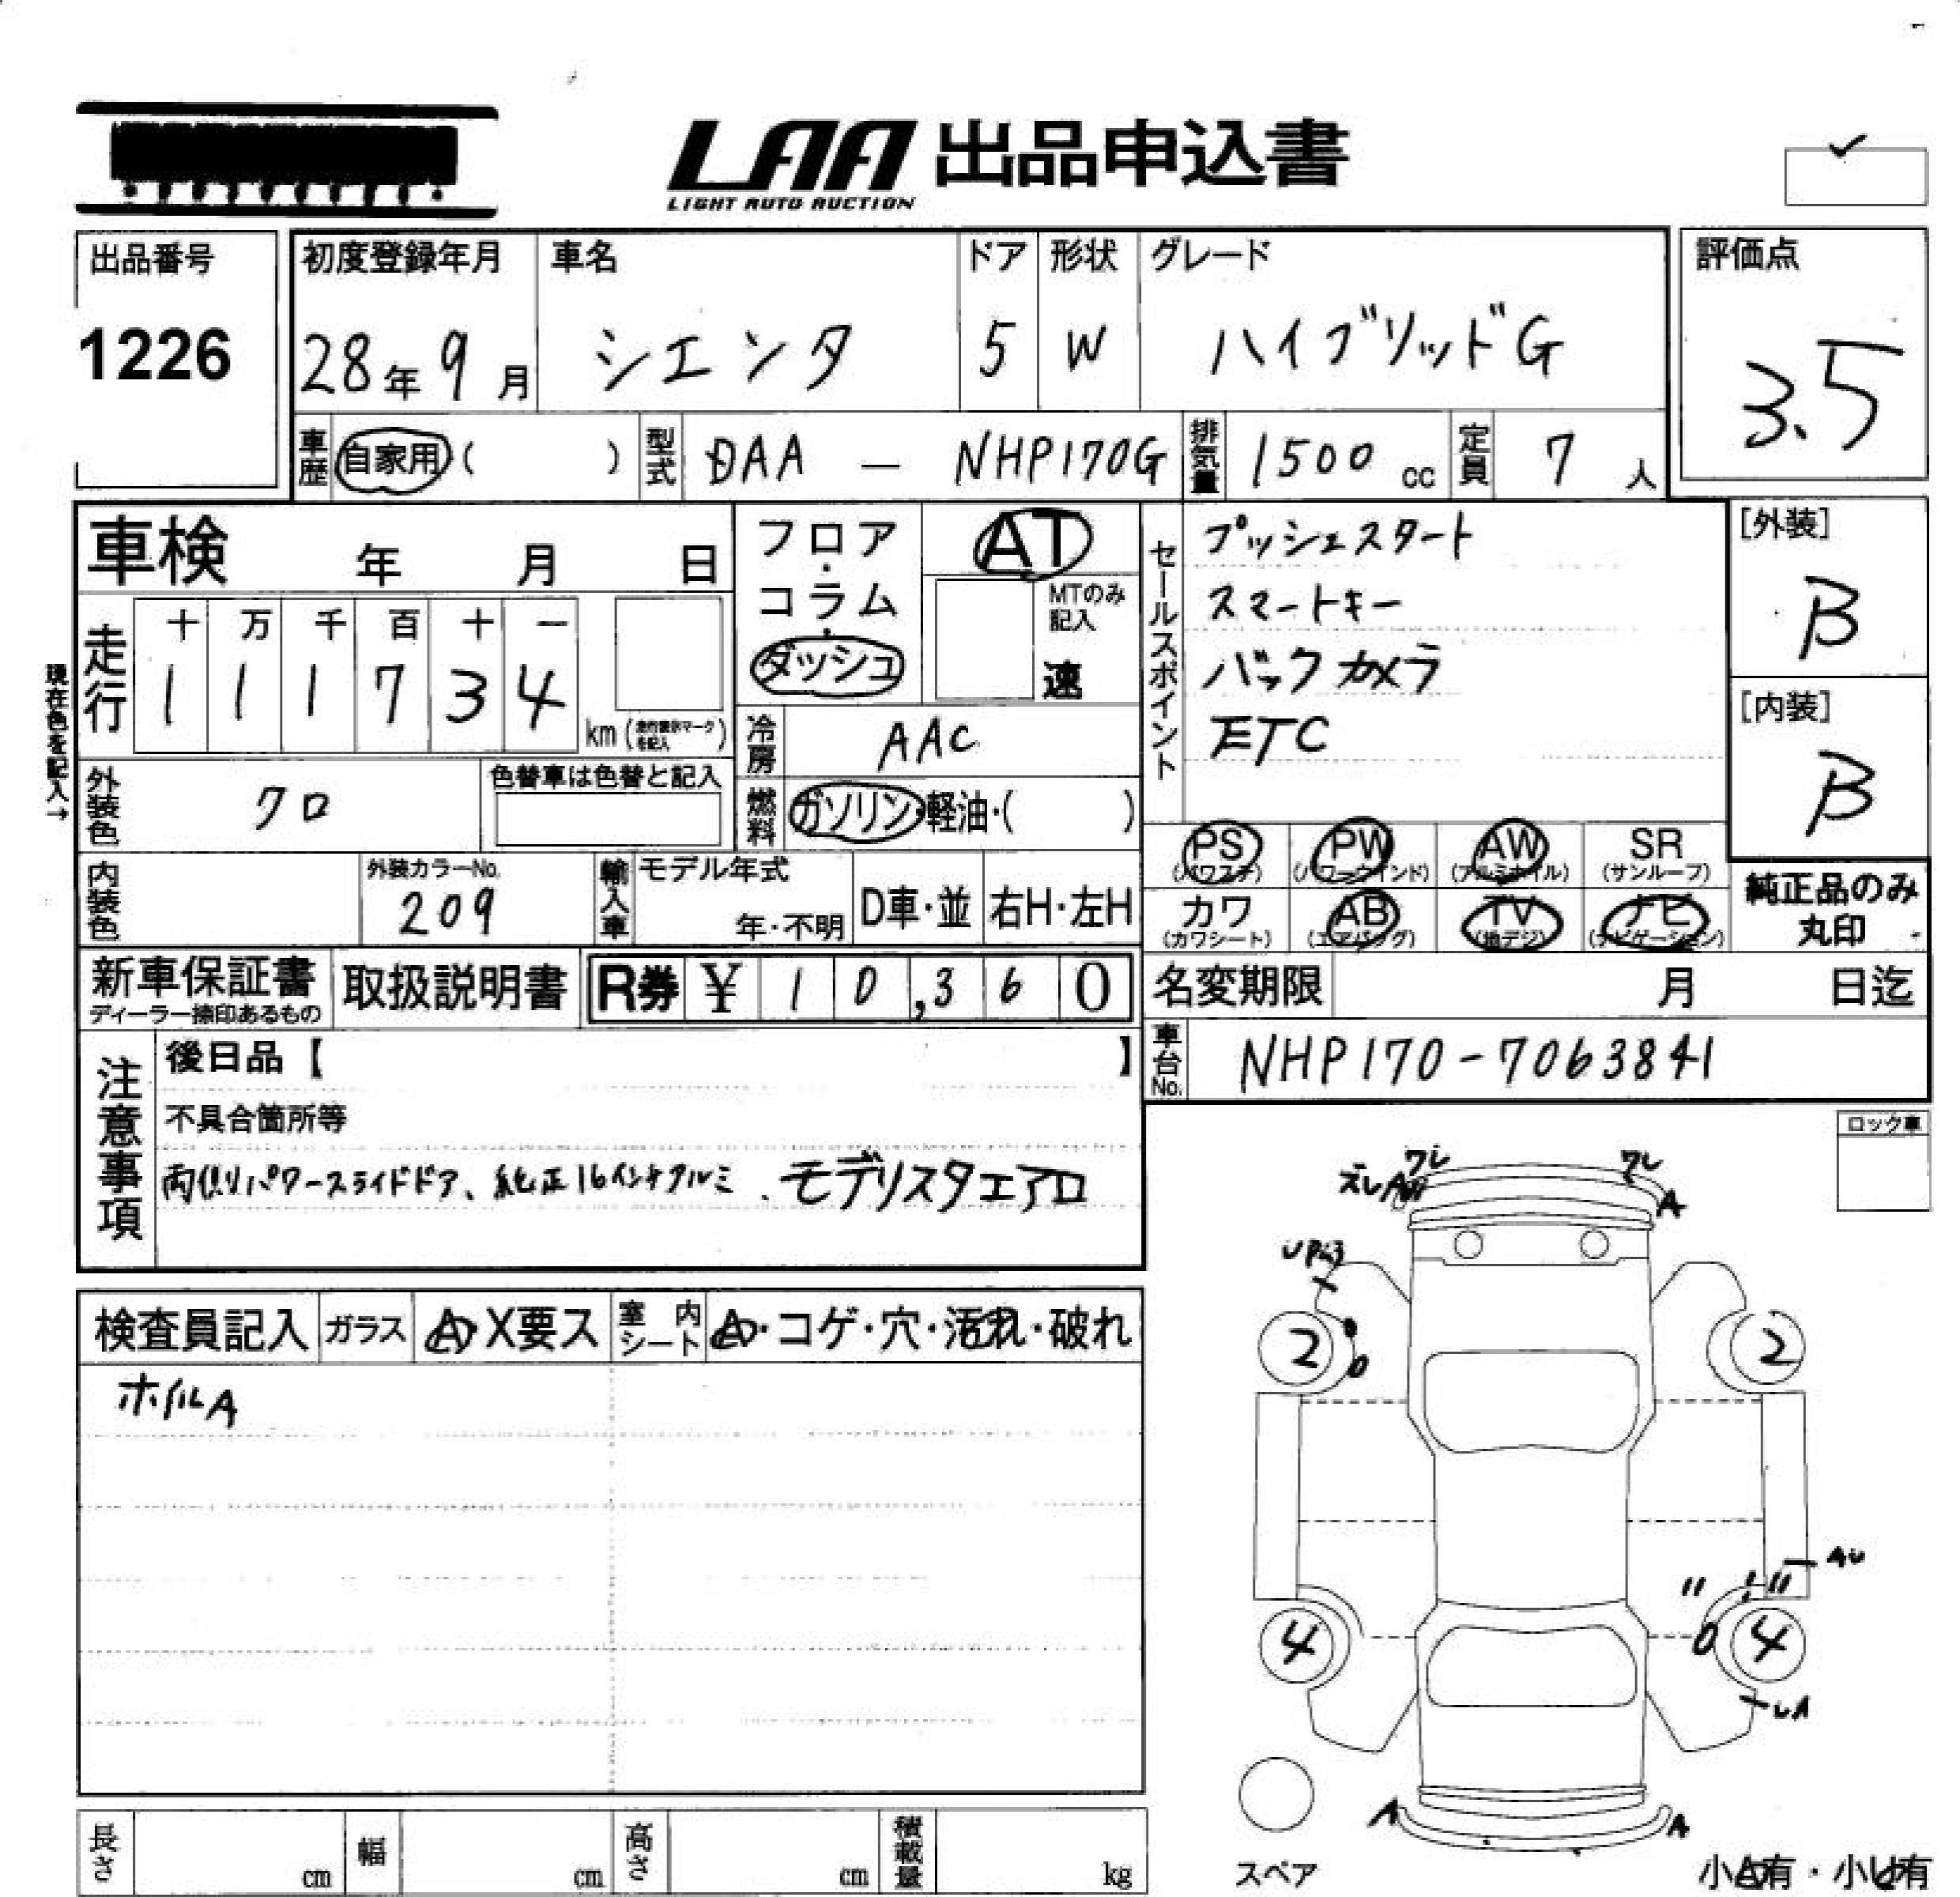 LAA 出品申込書
LIGHT AUTO AUCTION
出品番号
1226
初度登録年月
28年9月
車名
シエンタ
ドア
5
形状
W
グレード
ハイブリッドG
評価点
3.5
車歴
自家用( )
型式
DAA - NHP170G
排気量
1500 cc
定員
7 人
車検 年 月 日
走行
十 万 千 百 十 一
1 1 1 7 3 4
km (走行表示マークを記入)
現在色を記入→
外装色
クロ
色替車は色替と記入
内装色
外装カラーNo.
209
フロア・コラム・ダッシュ
AT
MTのみ記入
速
冷房
AAC
燃料
ガソリン・軽油・( )
輸入車
モデル年式
年・不明
D車・並
右H・左H
セールスポイント
プッシュスタート
スマートキー
バックカメラ
ETC
[外装]
B
[内装]
B
PS (パワステ)
PW (パワーウインド)
AW (アルミホイル)
SR (サンルーフ)
カワ (カワシート)
AB (エアバッグ)
TV (地デジ)
ナビ (ナビゲーション)
純正品のみ丸印
新車保証書
ディーラー捺印あるもの
取扱説明書
R券 ¥ 10,360
名変期限 月 日迄
車台No.
NHP170-7063841
注意事項
後日品【 】
不具合箇所等
両側パワースライドドア、純正16インチアルミ、モデリスタエアロ
ロック車
検査員記入
ガラス
A・X要ス
室内シート
A・コゲ・穴・汚れ・破れ
ホイルA
ワレ
ワレ
ズレA
A
2
2
AU
4
4
UA
A
A
スペア
小A有・小U有
長さ cm
幅 cm
高さ cm
積載量 kg